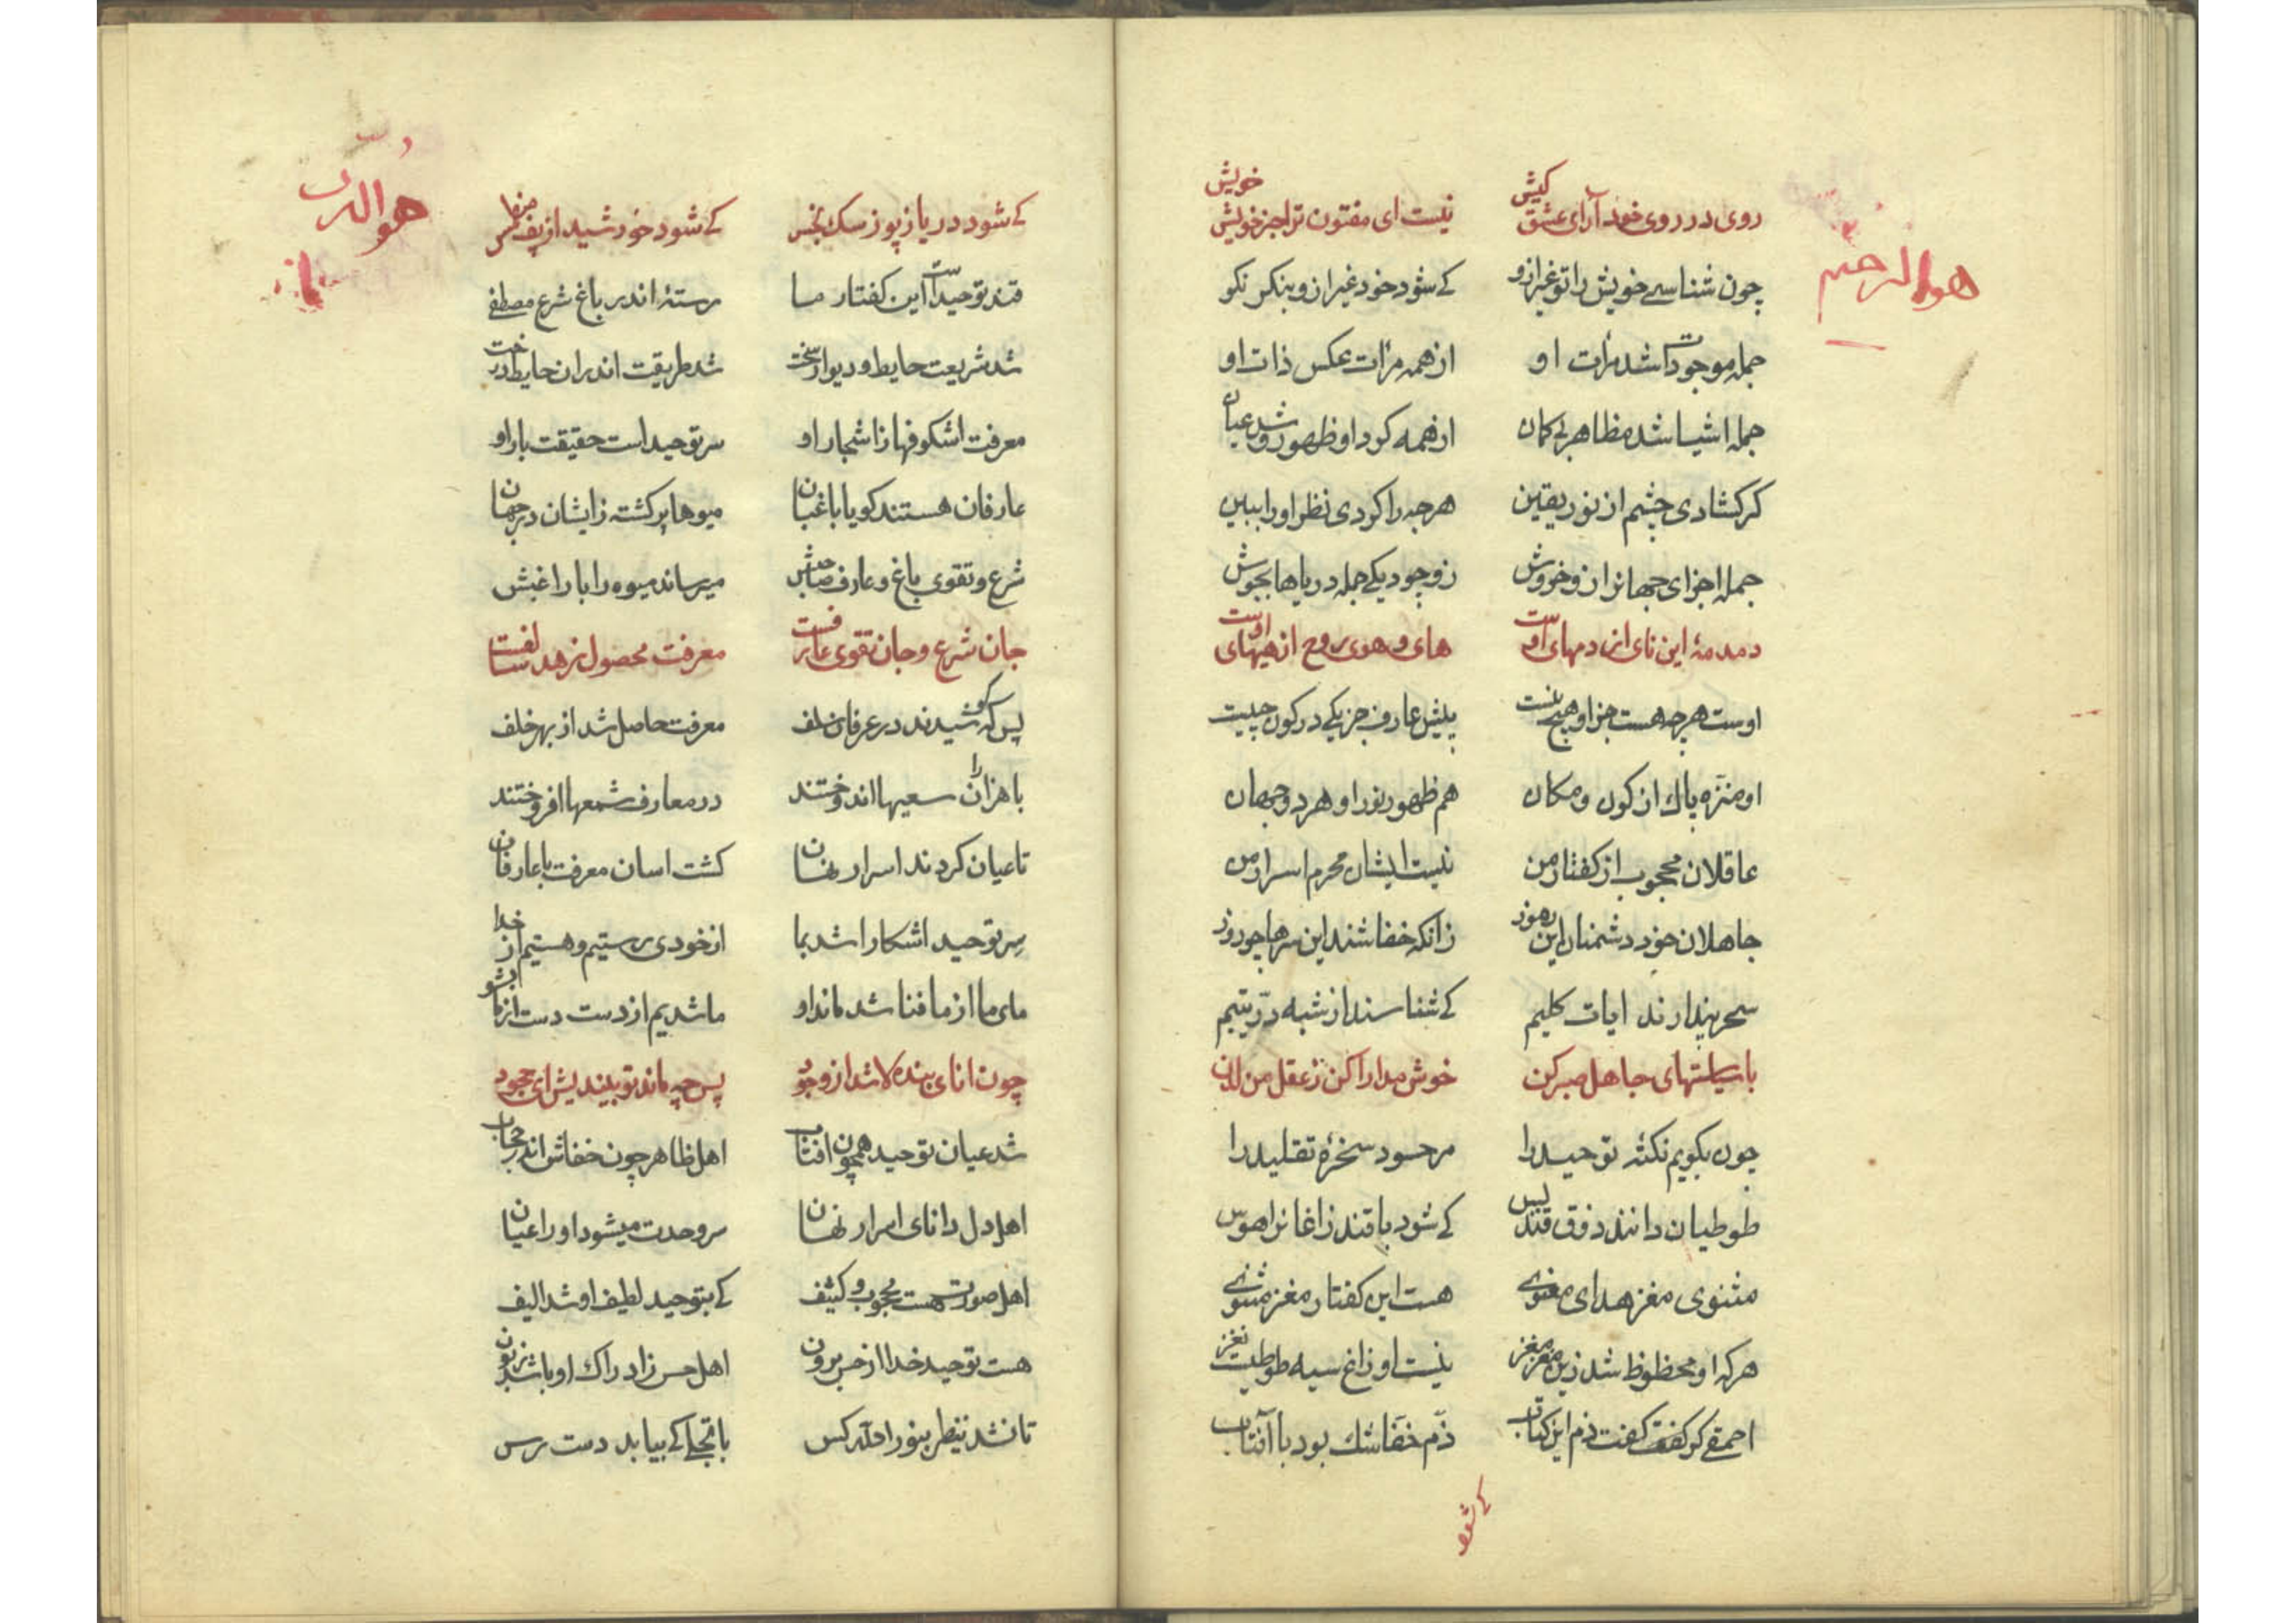 هو الرحیم
روی در روی خود آر ای عشق کیش نیست ای مفتون ترا جز خویش خویش
چون شناسے خویش را تو غیر ازو کے شود خود غیر ازو بنکر نکو
جمله موجودات شد مرٲت او از همه مرٲت عکس ذات او
جمله اشیا شد مظاهر بی کمان از همه کرد او ظهور و شد عیان
کر کشادی چشم از نور یقین هر چه را کردی نظر او را ببین
جمله اجزای جهانرا زو خروش ز وجود یکے جمله دریاها بجوش
دمدمهٔ این نای از دمهای اوست های و هوی روح از هیهای اوست
اوست هر چه هست جز او هیچ نیست پیش عارف جز یکے در کون چیست
او منزه پاک از کون و مکان هم ظهور نور او هر دو جهان
عاقلان محجوب از کفتار من نیست ایشان محرم اسرار من
جاهلان خود دشمنان این رموز زانکه خفاشند این سرها چو روز
سحر پندارند ایات کلیم کے شناسند از شبه در یتیم
با سیاستهای جاهل صبر کن خوش مدارا کن ز عقل من لدن
چون بکویم نکتهٔ توحید را مر حسود سخرهٔ تقلید را
طوطیان دانند ذوق قند پس کے شود با قند زاغانرا هوس
مثنوی مغز هدای معنوے هست این کفتار مغز مثنوے
هر که او محظوظ شد زین مغز مغز نیست او زاغ سیه طوطیست نغز
احمقے کر کفت ذم این کتاب ذم خفاشک بود با آفتاب
کے شود
هو
کے شود دریا ز پوز سک نجس کے شود خورشید از پف منطمس
قند توحیدست این کفتار ما رستهٔ اندر باغ شرع مصطفے
شد شریعت حایط و دیوار سخت شد طریقت اندران حایط درخت
معرفت اشکوفها ز اشجار او سر توحید است حقیقت بار او
عارفان هستند کویا باغبان میوها پر کشته زایشان در جهان
شرع و تقوی باغ و عارف صاحبش میرساند میوه را با راغبش
جان شرع و جان تقوی عارفست معرفت محصول زهد سالفست
پس که کوشیدند در عرفان سلف معرفت حاصل شد از بهر خلف
با هزاران سعیها اندوختند در معارف شمعها افروختند
تا عیان کردند اسرار نهان کشت اسان معرفت با عارفان
سر توحید اشکارا شد بما از خودی رستیم و هستیم از خدا
مای ما از ما فنا شد ماند او ما شدیم از دست دست از ما بشو
چون انای بنده لا شد از وجود پس چه ماند تو بیندیش ای جحود
شد عیان توحید همچون افتاب اهل ظاهر چون خفاش اندر حجاب
اهل دل دانای اسرار نهان سر وحدت میشود او را عیان
اهل صورت هست محجوب و کثیف کے بتوحید لطیف او شد الیف
هست توحید خدا از حس برون اهل حس ز ادراک او باشد زبون
تا نشد ینظر بنور الله کس با تجلے کے بیابد دست رس